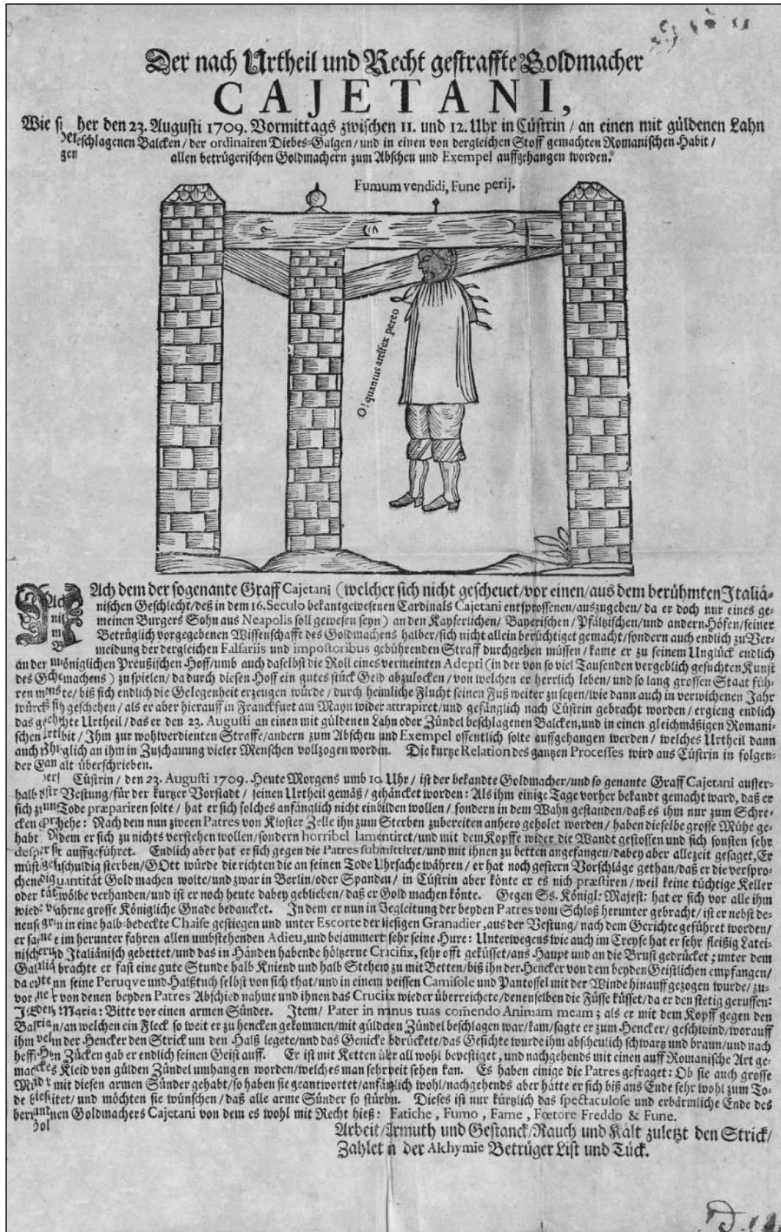 Der nach Urtheil und Recht gestraffte Goldmacher
CAJETANI,
Wie her den 23. Augusti 1709. Vormittags zwischen 11. und 12. Uhr in Cüstrin / an einen mit güldenen Lahn
beschlagenen Balcken / der ordinairen Diebes-Galgen / und in einen von dergleichen Stoff gemachten Romanischen Habit /
allen betrügerischen Goldmachern zum Abscheu und Exempel auffgehangen worden.
Fumum vendidi, Fune perij.
O! quantus artifex pereo
NAch dem der sogenante Graff Cajetani (welcher sich nicht gescheuet / vor einen / aus dem berühmten Italiä-
nischen Geschlecht / deß in dem 16. Seculo bekantgewesenen Cardinals Cajetani entsprossenen / auszugeben / da er doch nur eines ge-
meinen Burgers Sohn aus Neapolis soll gewesen seyn) an den Kayserlichen / Bayerischen / Pfältzischen / und andern Höfen / seiner
Betrüglich vorgegebenen Wissenschafft des Goldmachens halber / sich nicht allein berüchtiget gemacht / sondern auch endlich zu Ver-
meidung der dergleichen Falsariis und impostoribus gebührenden Straff durchgehen müssen / kame er zu seinem Unglück endlich
an der Königlichen Preußischen Hoff / umb auch daselbst die Roll eines vermeinten Adepti (in der von so viel Tausenden vergeblich gesuchten Kunst
des Goldmachens) zu spielen / da durch diesen Hoff ein gutes stück Geld abzulocken / von welchen er herrlich leben / und so lang grossen Staat füh-
ren biß sich endlich die Gelegenheit erzeugen würde / durch heimliche Flucht seinen Fuß weiter zu setzen / wie dann auch in verwichenen Jahr
geschehen / als er aber hierauff in Franckfurt am Mayn wider attrapiret / und gefänglich nach Cüstrin gebracht worden / ergieng endlich
das Urtheil / das er den 23. Augusti an einen mit güldenen Lahn oder Zündel beschlagenen Balcken / und in einen gleichmäßigen Romani-
schen Ihm zur wohlverdienten Straffe / andern zum Abscheu und Exempel offentlich solte auffgehangen werden / welches Urtheil dann
auch an ihm in Zuschauung vieler Menschen vollzogen worden. Die kurtze Relation des gantzen Processes wird aus Cüstrin in folgen-
der überschrieben.
Cüstrin / den 23. Augusti 1709. Heute Morgens umb 10. Uhr / ist der bekandte Goldmacher / und so genante Graff Cajetani ausser-
halb Vestung / für der kurtzer Vorstadt / seinen Urtheil gemäß / gehäncket worden: Als ihm einige Tage vorher bekandt gemacht ward / daß er
sich zum Tode præpariren solte / hat er sich solches anfänglich nicht einbilden wollen / sondern in dem Wahn gestanden / daß es ihm nur zum Schre-
cken Nach dem nun zween Patres von Kloster Zelle ihn zum Sterben zubereiten anhero geholet worden / haben dieselbe grosse Mühe ge-
habt er sich zu nichts verstehen wollen / sondern horribel lamentiret / und mit dem Kopffe wider die Wandt gestossen und sich sonsten sehr
auffgeführet. Endlich aber hat er sich gegen die Patres submittiret / und mit ihnen zu betten angefangen / dabey aber allezeit gesaget / Er
müste sterben / GOtt würde die richten die an seinen Tode Uhrsache währen / er hat noch gestern Vorschläge gethan / daß er die verspro-
chene quantität Gold machen wolte / und zwar in Berlin / oder Spanden / in Cüstrin aber könte er es nich præstiren / weil keine tüchtige Keller
oder verhanden / und ist er noch heute dabey geblieben / daß er Gold machen könte. Gegen Ss. Königl. Majest: hat er sich vor alle ihm
grosse Königliche Gnade bedancket. In dem er nun in Begleitung der beyden Patres vom Schloß herunter gebracht / ist er nebst de-
nenselben in eine halb-bedeckte Chaise gestiegen und unter Escorte der hiesigen Granadier / aus der Vestung / nach dem Gerichte geführet worden /
er im herunter fahren allen umbstehenden Adieu / und bejammert sehr seine Hure: Unterwegens wie auch im Creyse hat er sehr fleißig Latei-
nisch und Italiänisch gebettet / und das in Händen habende höltzerne Crucifix, sehr offt geküsset / ans Haupt und an die Brust gedrücket; unter dem
brachte er fast eine gute Stunde halb Kniend und halb Stehend zu mit Betten / biß ihn der Hencker von dem beyden Geistlichen empfangen /
da seine Peruqve und Halßtuch selbst von sich that / und in einem veissen Camisole und Pantossel mit der Winde hinauff gezogen wurde / zu-
vor von denen beyden Patres Abschied nahme und ihnen das Crucifix wieder überreichete / denenselben die Füsse küsset / da er den stetig geruffen:
Maria: Bitte vor einen armen Sünder. Item / Pater in mnus tuas comendo Animam meam; als er mit dem Kopff gegen den
Balcken / an welchen ein Fleck so weit er zu hencken gekommen / mit güldenen Zündel beschlagen war / kam / sagte er zum Hencker / geschwind / worauff
ihm der Hencker den Strick um den Halß legete / und das Genicke bdrückete / das Gesichte wurde ihm abscheulich schwartz und braun / und nach
Zücken gab er endlich seinen Geist auff. Er ist mit Ketten über all wohl bevestiget / und nachgehends mit einen auff Romanische Art ge-
machtes Kleid von gülden Zündel umhangen worden / welches man sehr weit sehen kan. Es haben einige die Patres gefraget: Ob sie auch grosse
mit diesen armen Sünder gehabt / so haben sie geantwortet / anfänglich wohl / nachgehends aber hätte er sich biß ans Ende sehr wohl zum To-
de und möchten sie wünschen / daß alle arme Sünder so stürbn. Dieses ist nur kürtzlich das spectaculose und erbärmliche Ende des
Goldmachers Cajetani von dem es wohl mit Recht hieß: Fatiche, Fumo, Fame, Fœtore Freddo & Fune.
Arbeit / Armuth und Gestanck / Rauch und Kält zuletzt den Strick /
Zahlet n der Alchymie Betrüger List und Tück.